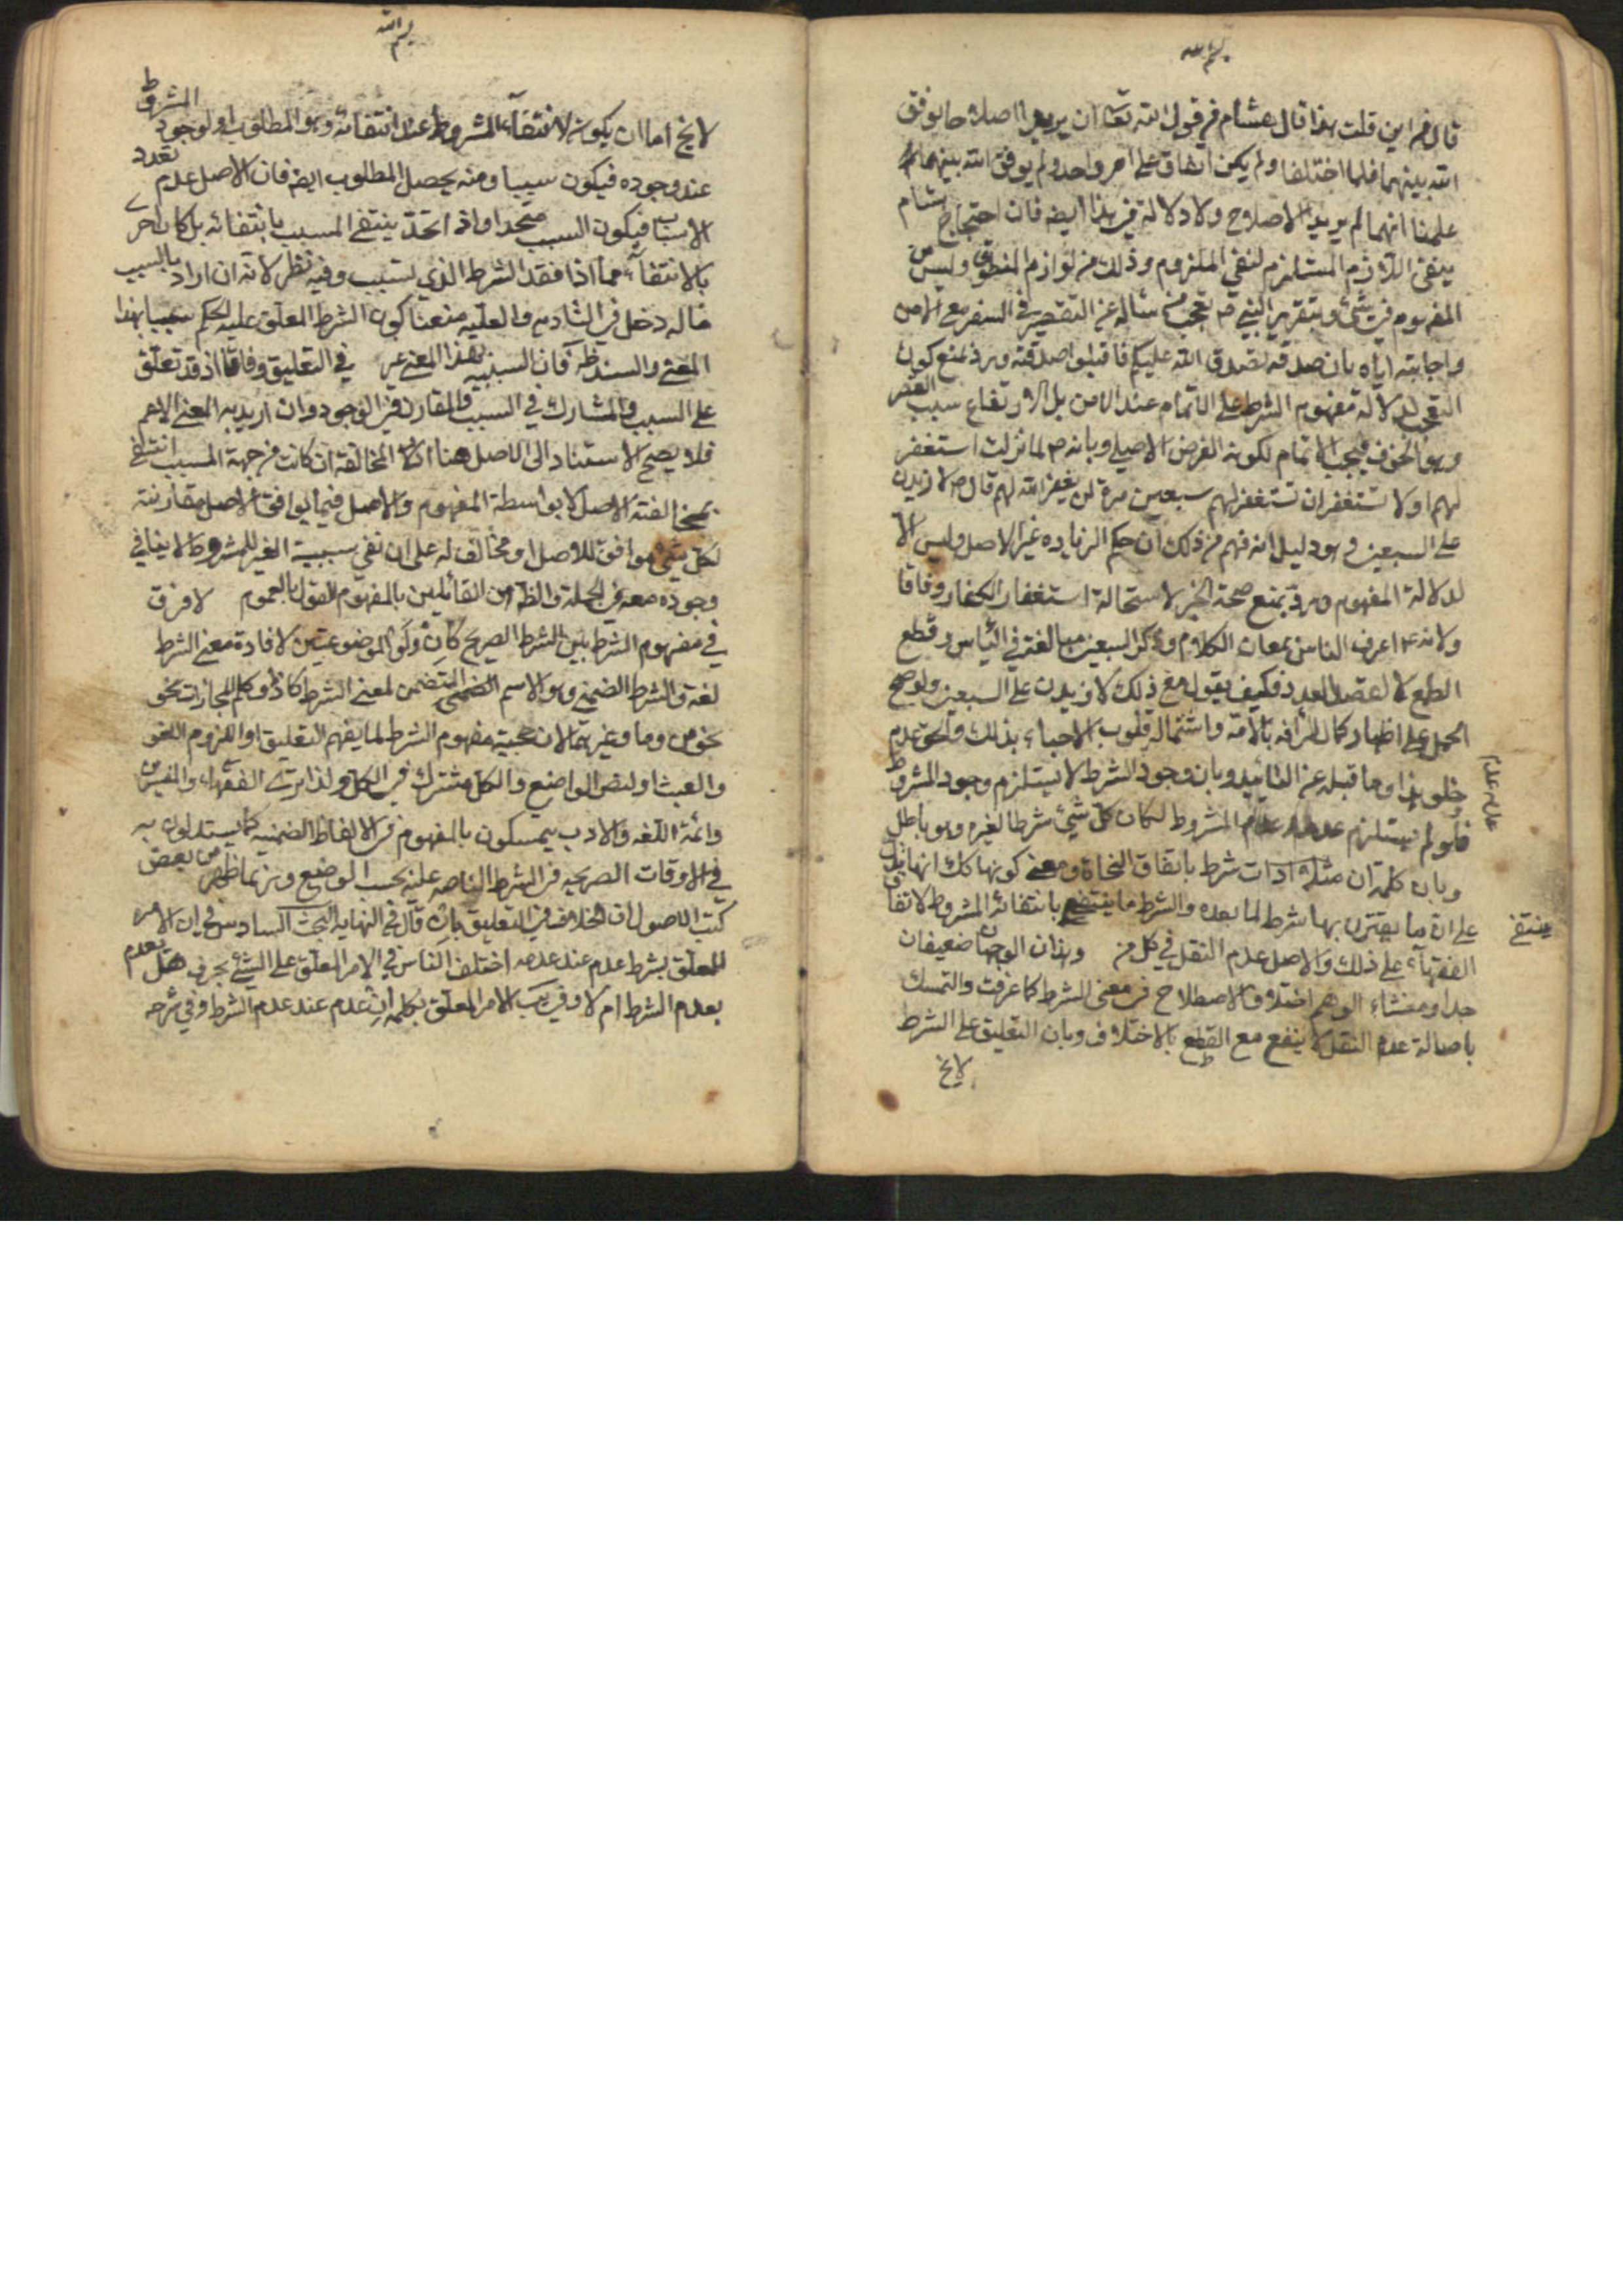 بسم الله
قال فمن اين قلت هذا قال هشام في قول الله تعالى ان يريدا اصلاحا يوفق
الله بينهما فلما اختلفا ولم يكن اتفاق على امر واحد ولم يوفق الله بينهما
علمنا انهما لم يريدا الاصلاح ولا دلالة في هذا ايضه فان احتجاج هشام
بنفي اللازم المستلزم لنفي الملزوم وذلك من لوازم المنطوق وليس من
المفهوم في شئ وبتقرير النبي ص تعجب من سأله عن التقصير في السفر مع الامن
واجابته اياه بان صدقه تصدق الله عليكم فاقبلوا صدقته ورد بمنع كون
التعجب لدلالة مفهوم الشرط على الاتمام عند الامن بل لارتفاع سبب القصر
وهو الخوف فيجب الاتمام لكونه الفرض الاصلي وبانه ص لما نزلت استغفر
لهم او لا تستغفر ان تستغفر لهم سبعين مرة لن يغفر الله لهم قال ص لازيدن
على السبعين وهو دليل انه فهم من ذلك ان حكم الزياده غير الاصل وليس الا
لدلالة المفهوم ورد بمنع صحة الخبر لاستحالة استغفار الكفار وفاقا
ولانه اعرف الناس بمعان الكلام وذكر السبعين مبالغة في الياس وقطع
الطمع لا لقصد العدد فكيف يقول مع ذلك لازيدن على السبعين ولو صح
الحمل على اظهار كمال الرأفه بالامة واستماله قلوب الاحياء بذلك والحق عدم
خلو هذا وما قبله عن التائيد وبان وجود الشرط لا يستلزم وجود المشروط
فلو لم يستلزم عدمه عدم المشروط لكان كل شئ شرطا لغيره وهو باطل
وبان كلمة ان مثلا ادات شرط باتفاق النحاة ومعنى كونها كك انها تدل
على ان ما يقترن بها شرط لما بعده والشرط ما ينتفي بانتفائه المشروط لاتفاق
ينتفي
الفقهآء على ذلك والاصل عدم النقل في كل من وهذان الوجهان ضعيفان
جدا ومنشاء الوهم اختلاف الاصطلاح في معنى الشرط كما عرفت والتمسك
باصالة عدم النقل لا ينفع مع القطع بالاختلاف وبان التعليق على الشرط
لايخ
بسم الله
لايخ اما ان يكون لانتفآء المشروط عند انتفائه وهو المطلوب او لوجود المشروط
عند وجوده فيكون سببا ومنه يحصل المطلوب ايضه فان الاصل عدم تعدد
الاسباب فيكون السبب متحدا واذا اتحد ينتفي المسبب بانتفائه بل كان احرى
بالانتفآء مما اذا فقد الشرط الذي ليس بسبب وفيه نظر لانه ان اراد بالسبب
ما له دخل في التاديه والعليه منعنا كون الشرط المعلق عليه الحكم سببا بهذا
المعنى والسند ظه فان السببيه بهذا المعنى غير في التعليق وفاقا اذ قد تعلق
على السبب والمشارك في السبب والمقارن في الوجود وان اريد به المعنى الاعم
فلا يصح الاستناد الى الاصل هنا اذ المخالفة ان كانت من جهة المسبب انتفى
بمخالفته الاصل لا بواسطة المفهوم والاصل فيما يوافق الاصل مقارنته
لكل شئ موافق للاصل او مخالف له على ان نفي سببية الغير للمشروط لا ينافي
وجوده معه في الجملة والظه من القائلين بالمفهوم القول بالعموم لا فرق
في مفهوم الشرط بين الشرط الصريح كان ولو الموضوعتين لافادة معنى الشرط
لغة والشرط الضمني وهو الاسم المتضمن لمعنى الشرط كاذ وكلم المجازات نحو
نحو من وما وغيرهما لان حجية مفهوم الشرط لما يفهم التعليق او اللزوم اللغو
والعبث او لنص الواضع والكل مشترك في الكل ولذا ترى الفقهاء والمفسرين
وائمة اللغه والادب يتمسكون بالمفهوم في الالفاظ الضمنيه كما يستدلون به
في الاوقات الصريحيه في الشرط الناصه عليه بحسب الوضع وربما ظهر من بعض
كتب الاصول ان الخلاف في التعليق بان قال في النهايه البحث السادس في ان الامر
المعلق بشرط عدم عند عدمه اختلف الناس في الامر المعلق على الشئ بحرف هل يعدم
بعدم الشرط ام لا وفي يب الامر المعلق بكلمه ان عدم عند عدم الشرط وفي شرحه